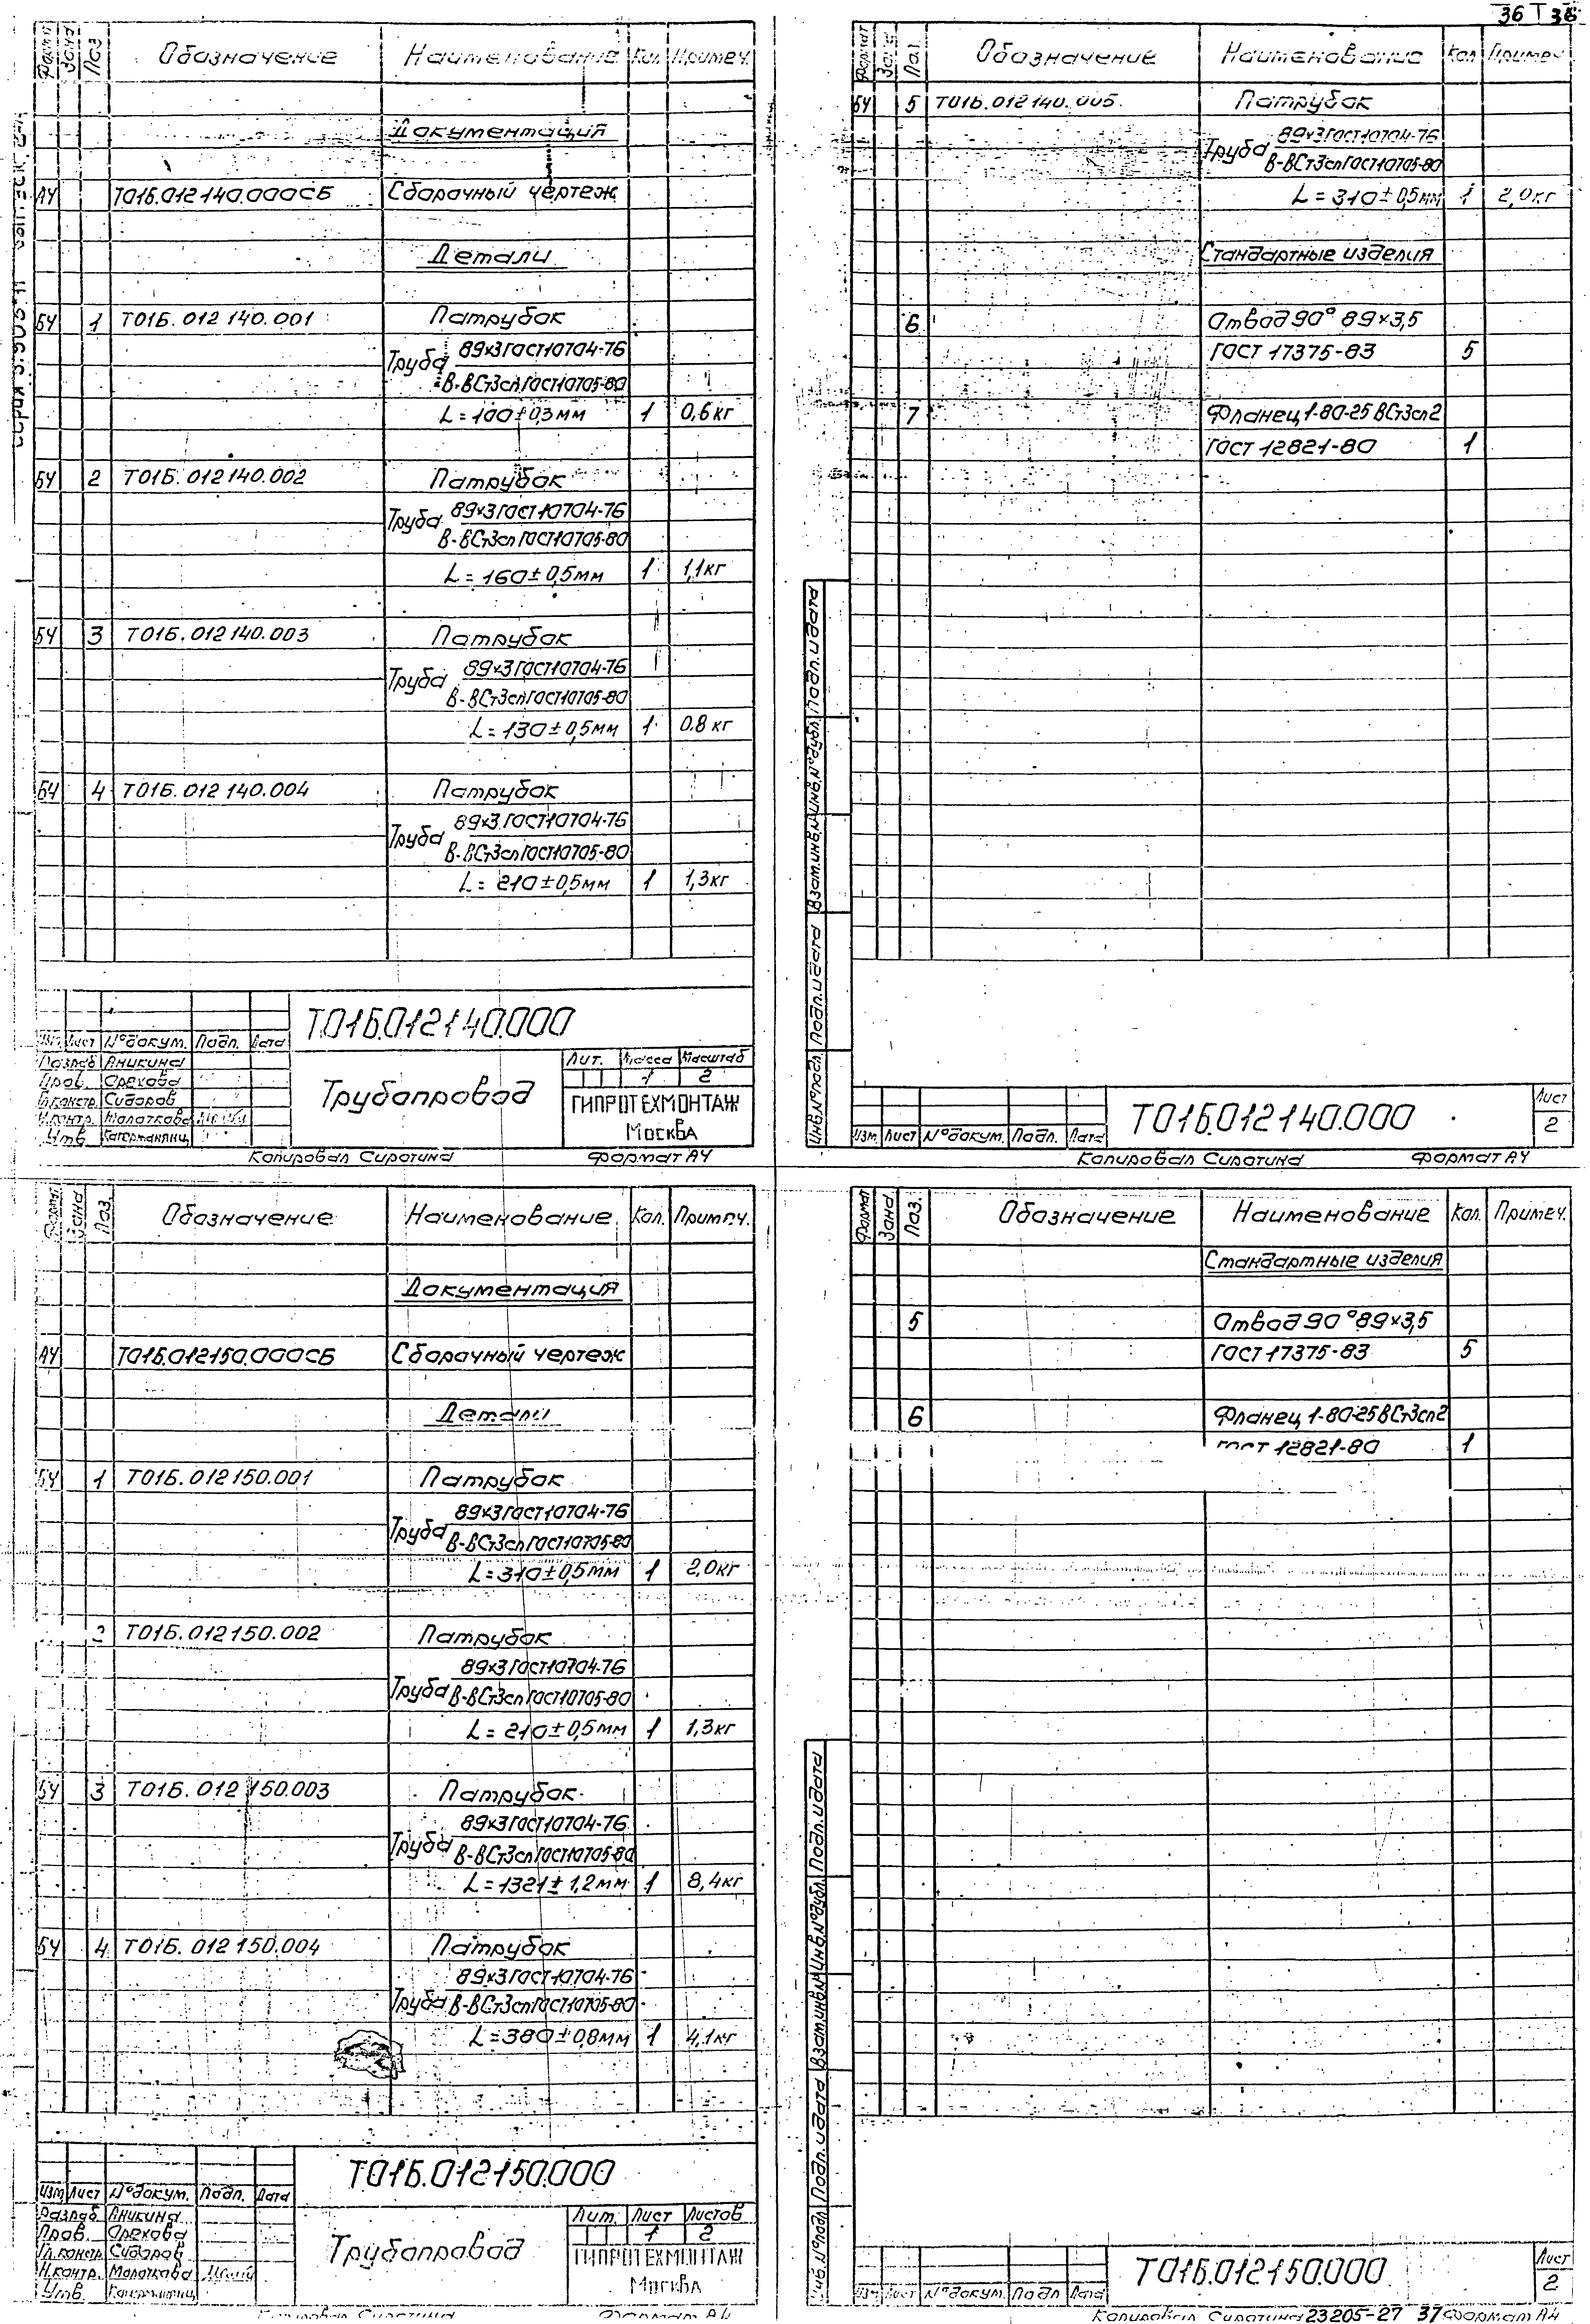 36 Т 38
Формат Зона Поз. Обозначение Наименование Кол. Примеч.
Документация
А4 Т01Б.012140.000СБ Сборочный чертеж
Детали
БЧ 1 Т01Б.012140.001 Патрубок
Труба 89×3 ГОСТ 10704-76
В-ВСт3сп ГОСТ 10705-80
L=100±0,3мм 1 0,6кг
БЧ 2 Т01Б.012140.002 Патрубок
Труба 89×3 ГОСТ 10704-76
В-ВСт3сп ГОСТ 10705-80
L=160±0,5мм 1 1,1кг
БЧ 3 Т01Б.012140.003 Патрубок
Труба 89×3 ГОСТ 10704-76
В-ВСт3сп ГОСТ 10705-80
L=130±0,5мм 1 0.8кг
БЧ 4 Т01Б.012140.004 Патрубок
Труба 89×3 ГОСТ 10704-76
В-ВСт3сп ГОСТ 10705-80
L=210±0,5мм 1 1,3кг
Т.01Б.012140.000
Изм. Лист №докум. Подп. Дата
Разраб. Аникина
Пров. Орехова
Гл.констр. Сидоров
Н.контр. Молоткова
Утв.
Трубопровод
Лит. Масса Масштаб
1 2
ГИПРОТЕХМОНТАЖ
Москва
Копировал Сиротина Формат А4
Формат Зона Поз. Обозначение Наименование Кол. Примеч.
БЧ 5 Т01Б.012140.005 Патрубок
Труба 89×3 ГОСТ 10704-76
В-ВСт3сп ГОСТ 10705-80
L=310±0,5мм 1 2,0кг
Стандартные изделия
6 Отвод 90° 89×3,5
ГОСТ 17375-83 5
7 Фланец 1-80-25 ВСт3сп2
ГОСТ 12821-80 1
Инв.№подл. Подп.идата Взам.инв.№ Инв.№дубл. Подп.идата
Изм. Лист №докум. Подп. Дата
Т01Б.012140.000
Лист
2
Копировал Сиротина Формат А4
Формат Зона Поз. Обозначение Наименование Кол. Примеч.
Документация
А4 Т01Б.012150.000СБ Сборочный чертеж
Детали
БЧ 1 Т01Б.012150.001 Патрубок
Труба 89×3 ГОСТ 10704-76
В-ВСт3сп ГОСТ 10705-80
L=310±0,5мм 1 2,0кг
2 Т01Б.012150.002 Патрубок
Труба 89×3 ГОСТ 10704-76
В-ВСт3сп ГОСТ 10705-80
L=210±0,5мм 1 1,3кг
БЧ 3 Т01Б.012150.003 Патрубок
Труба 89×3 ГОСТ 10704-76
В-ВСт3сп ГОСТ 10705-80
L=1321±1,2мм 1 8,4кг
БЧ 4 Т01Б.012150.004 Патрубок
Труба 89×3 ГОСТ 10704-76
В-ВСт3сп ГОСТ 10705-80
L=380±0,8мм 1 4,1кг
Т.01Б.012150.000
Изм. Лист №докум. Подп. Дата
Разраб. Аникина
Пров. Орехова
Гл.констр. Сидоров
Н.контр. Молоткова
Утв.
Трубопровод
Лит. Лист Листов
1 2
ГИПРОТЕХМОНТАЖ
Москва
Копировал Сиротина Формат А4
Формат Зона Поз. Обозначение Наименование Кол. Примеч.
Стандартные изделия
5 Отвод 90° 89×3,5
ГОСТ 17375-83 5
6 Фланец 1-80-25 ВСт3сп2
ГОСТ 12821-80 1
Инв.№подл. Подп.идата Взам.инв.№ Инв.№дубл. Подп.идата
Изм. Лист №докум. Подп. Дата
Т01Б.012150.000
Лист
2
Копировал Сиротина 23205-27 37 Формат А4